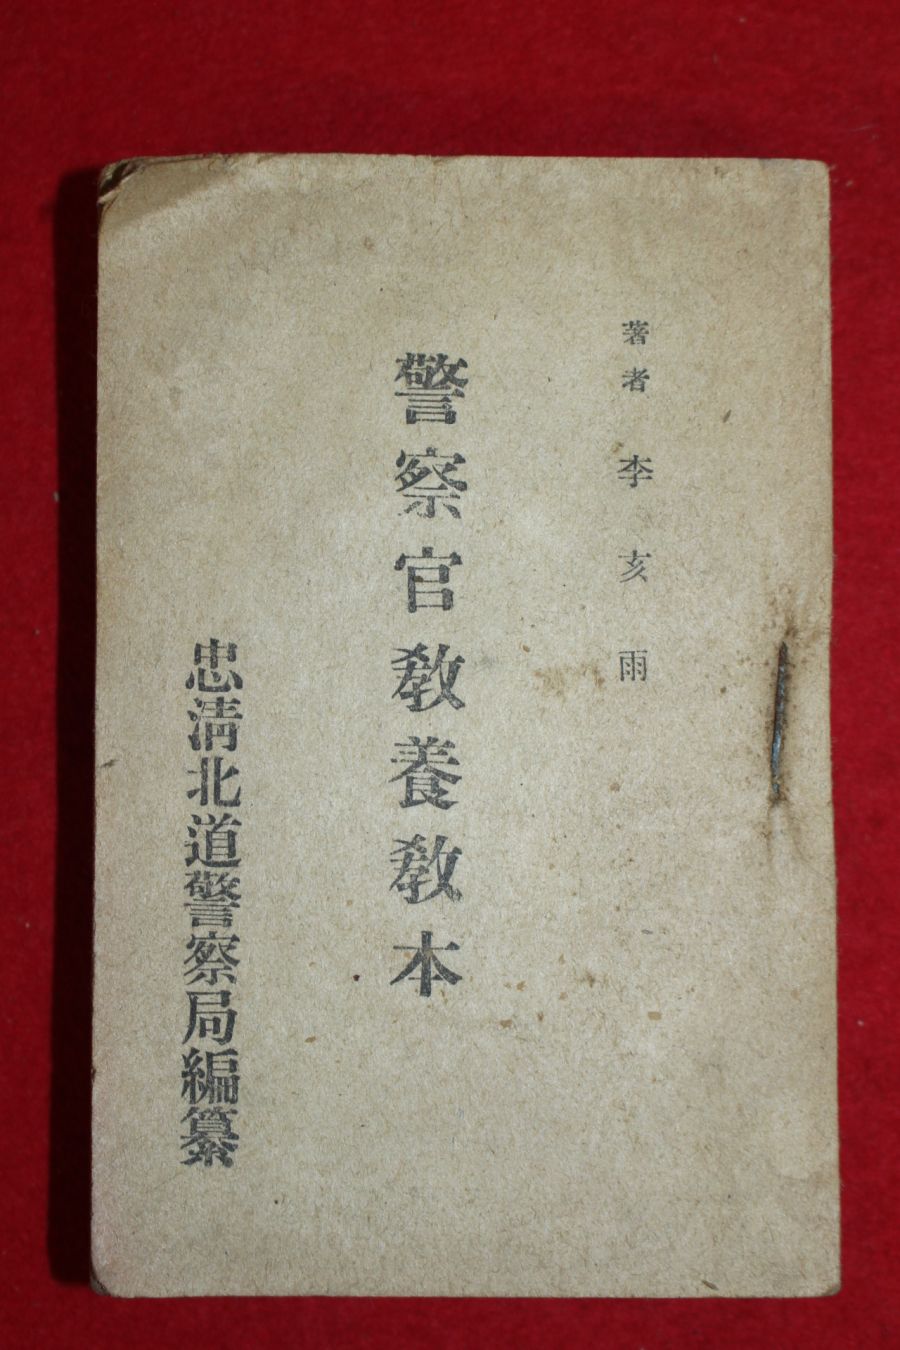 著者 李亥雨
警察官敎養敎本
忠淸北道警察局編纂